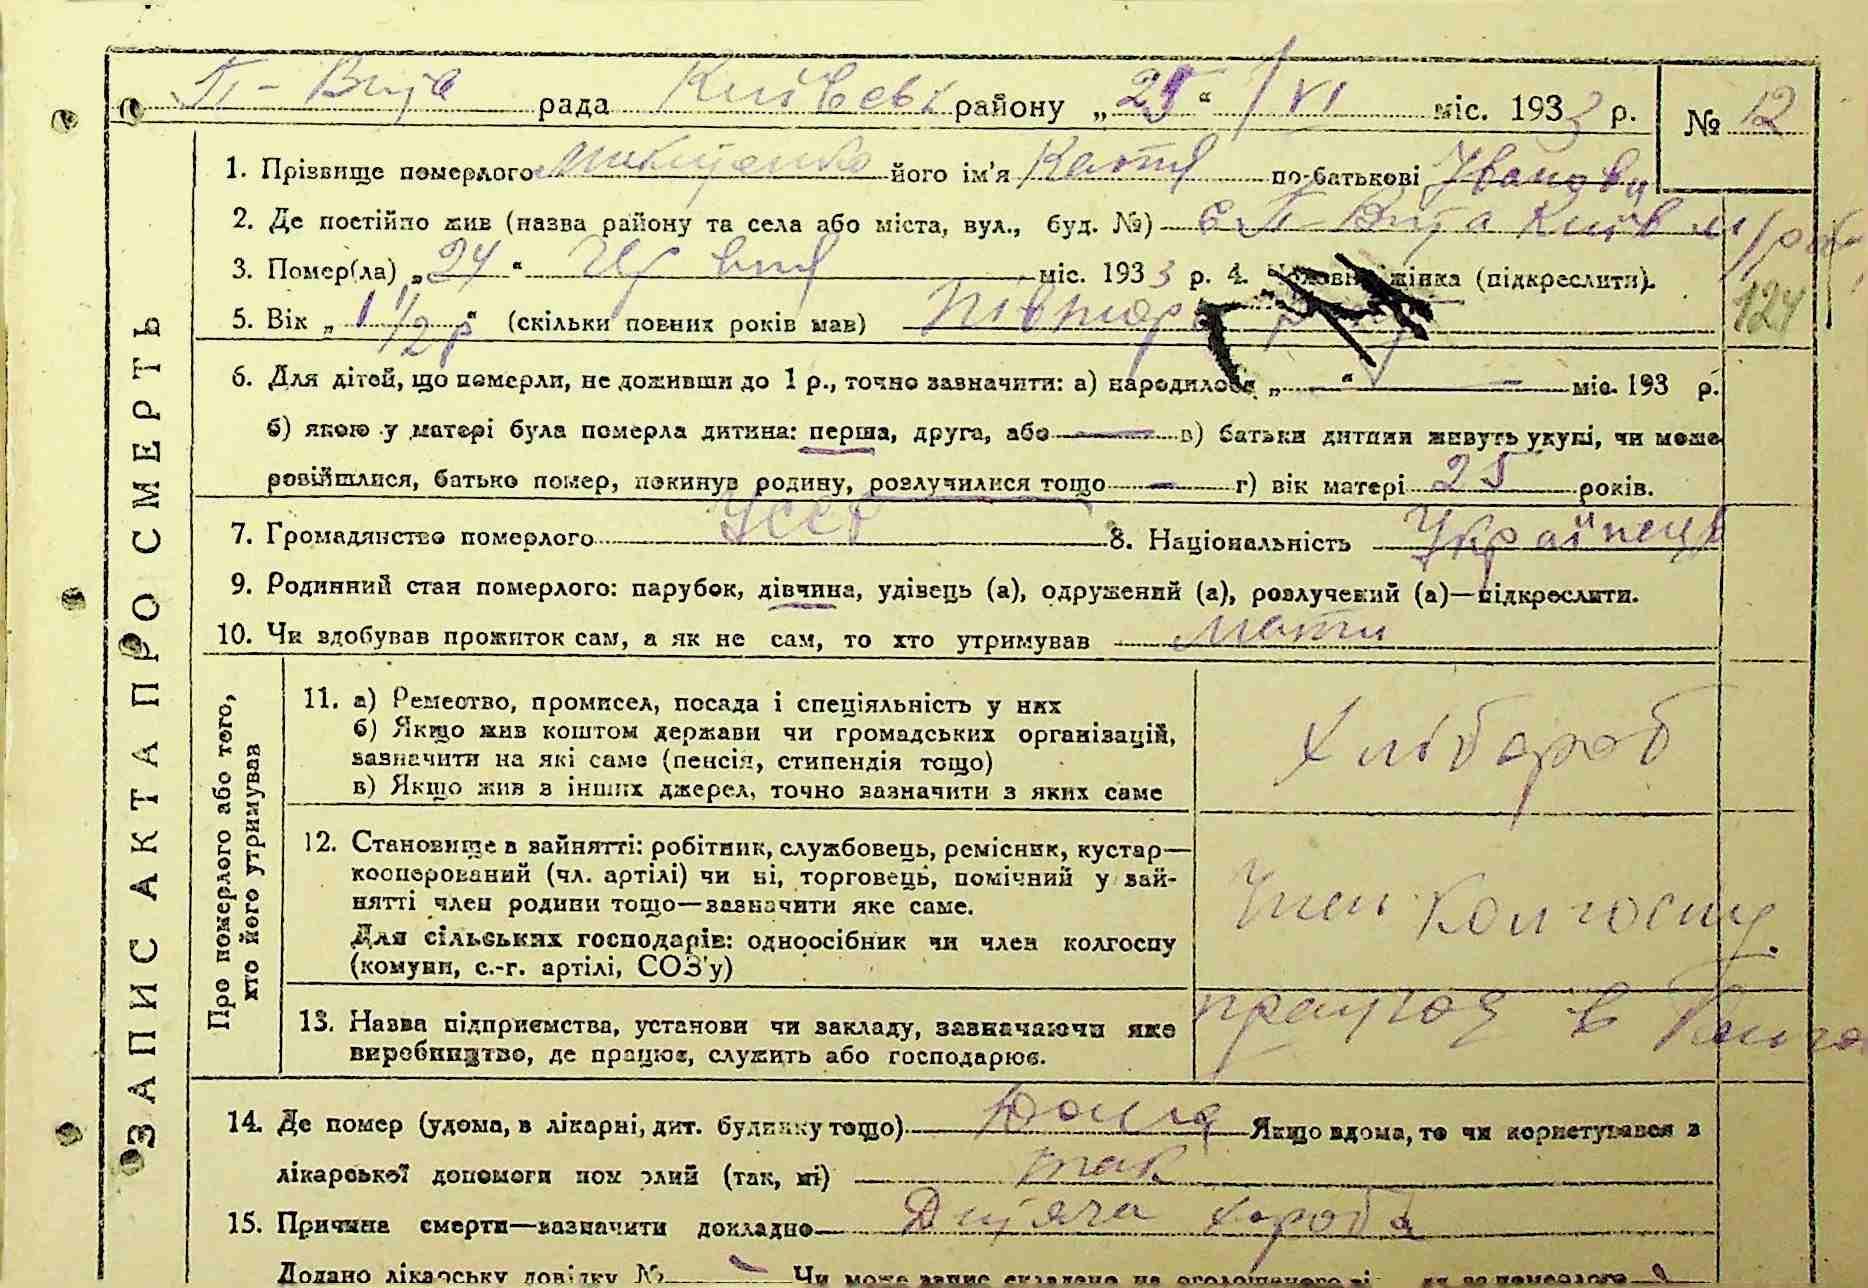 П-Вита рада Київськ району „25“ / VI міс. 1933 р. № 12
1. Прізвище померлого Микитенко його ім'я Катя по-батькові Іванов
2. Де постійно жив (назва району та села або міста, вул., буд. №) с. П-Вита Київ м/р
3. Помер(ла) „24“ Червня міс. 1933 р. 4. Чоловік, жінка (підкреслити).
5. Вік „1 1/2 р“ (скільки повних років мав) Півтора року
124
6. Для дітей, що померли, не доживши до 1 р., точно зазначити: а) народилося „—“ — міс. 193 р.
б) якою у матері була померла дитина: перша, друга, або — в) батьки дитини живуть укупі, чи може
розійшлися, батько помер, покинув родину, розлучилися тощо — г) вік матері 25 років.
7. Громадянство померлого УССР 8. Національність Українец
9. Родинний стан померлого: парубок, дівчина, удівець (а), одружений (а), розлучений (а)—підкреслити.
10. Чи здобував прожиток сам, а як не сам, то хто утримував Мати
ЗАПИС АКТА ПРО СМЕРТЬ
Про померлого або того,
хто його утримував
11. а) Ремество, промисел, посада і спеціяльність у них
б) Якщо жив коштом держави чи громадських організацій,
зазначити на які саме (пенсія, стипендія тощо)
в) Якщо жив з інших джерел, точно зазначити з яких саме
Хлібороб
12. Становище в зайнятті: робітник, службовець, ремісник, кустар—
кооперований (чл. артілі) чи ні, торговець, помічний у зай-
нятті член родини тощо—зазначити яке саме.
Для сільських господарів: одноосібник чи член колгоспу
(комуни, с.-г. артілі, СОЗ'у)
Член колгоспу.
13. Назва підприємства, установи чи закладу, зазначаючи яке
виробництво, де працює, служить або господарює.
працює в
14. Де помер (удома, в лікарні, дит. будинку тощо) Дома Якщо вдома, то чи користувався з
лікарської допомоги померлий (так, ні) так
15. Причина смерти—зазначити докладно Дитяча хороба
Додано лікарську довідку № — Чи може запис складено на оголошенні